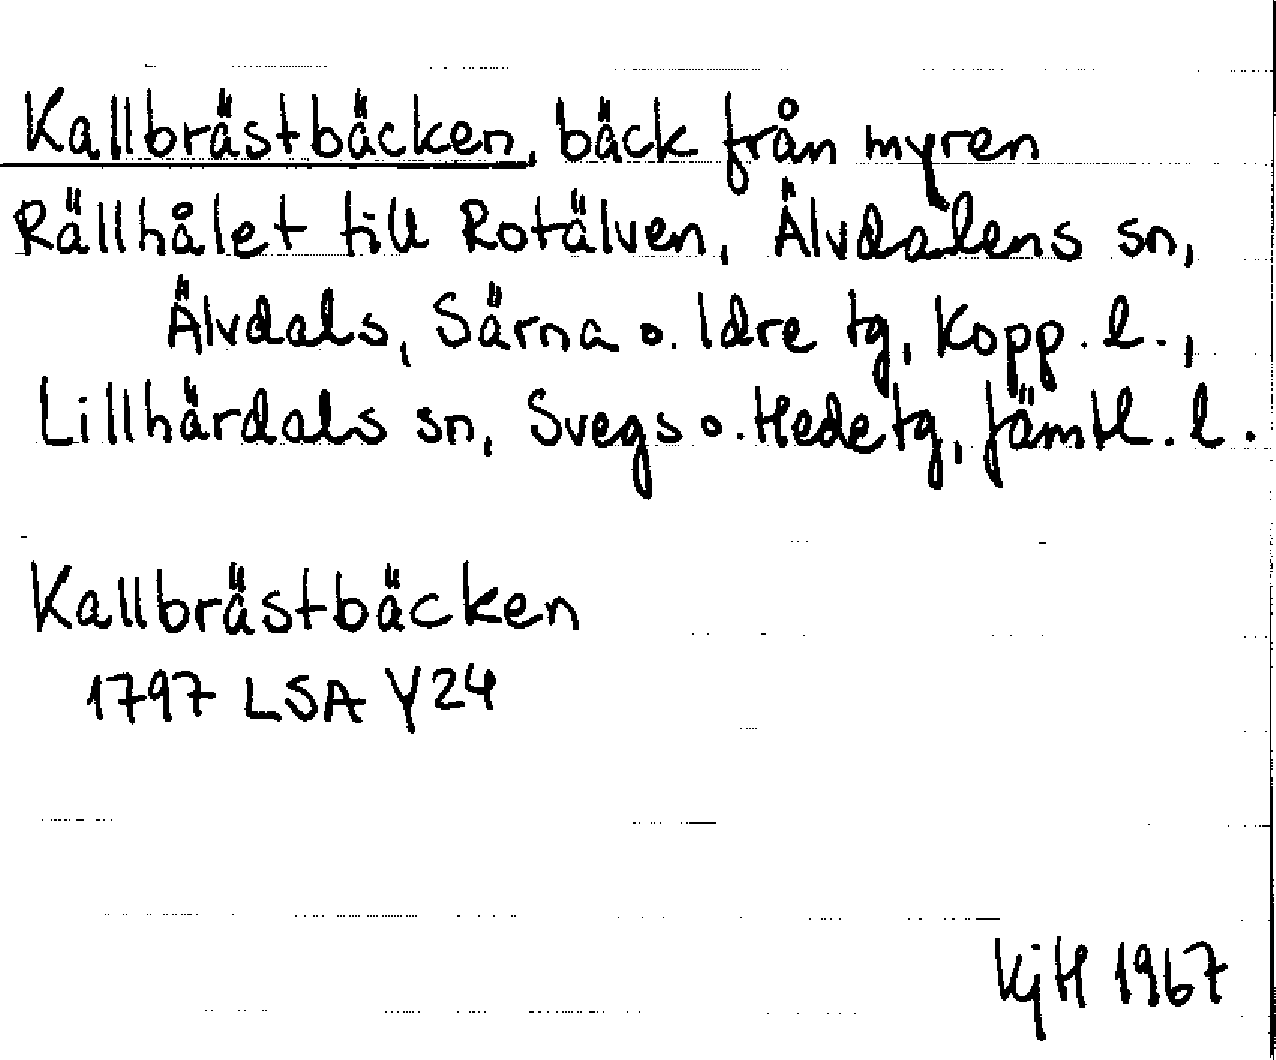 Kallbrästbäcken, bäck från myren
Rällhålet till Rotälven, Älvdalens sn,
Älvdals, Särna o. Idre tg, Kopp. l.,
Lillhärdals sn, Svegs o. Hede tg, Jämtl. l.
Kallbrästbäcken
1797 LSA Y24
KjH 1967